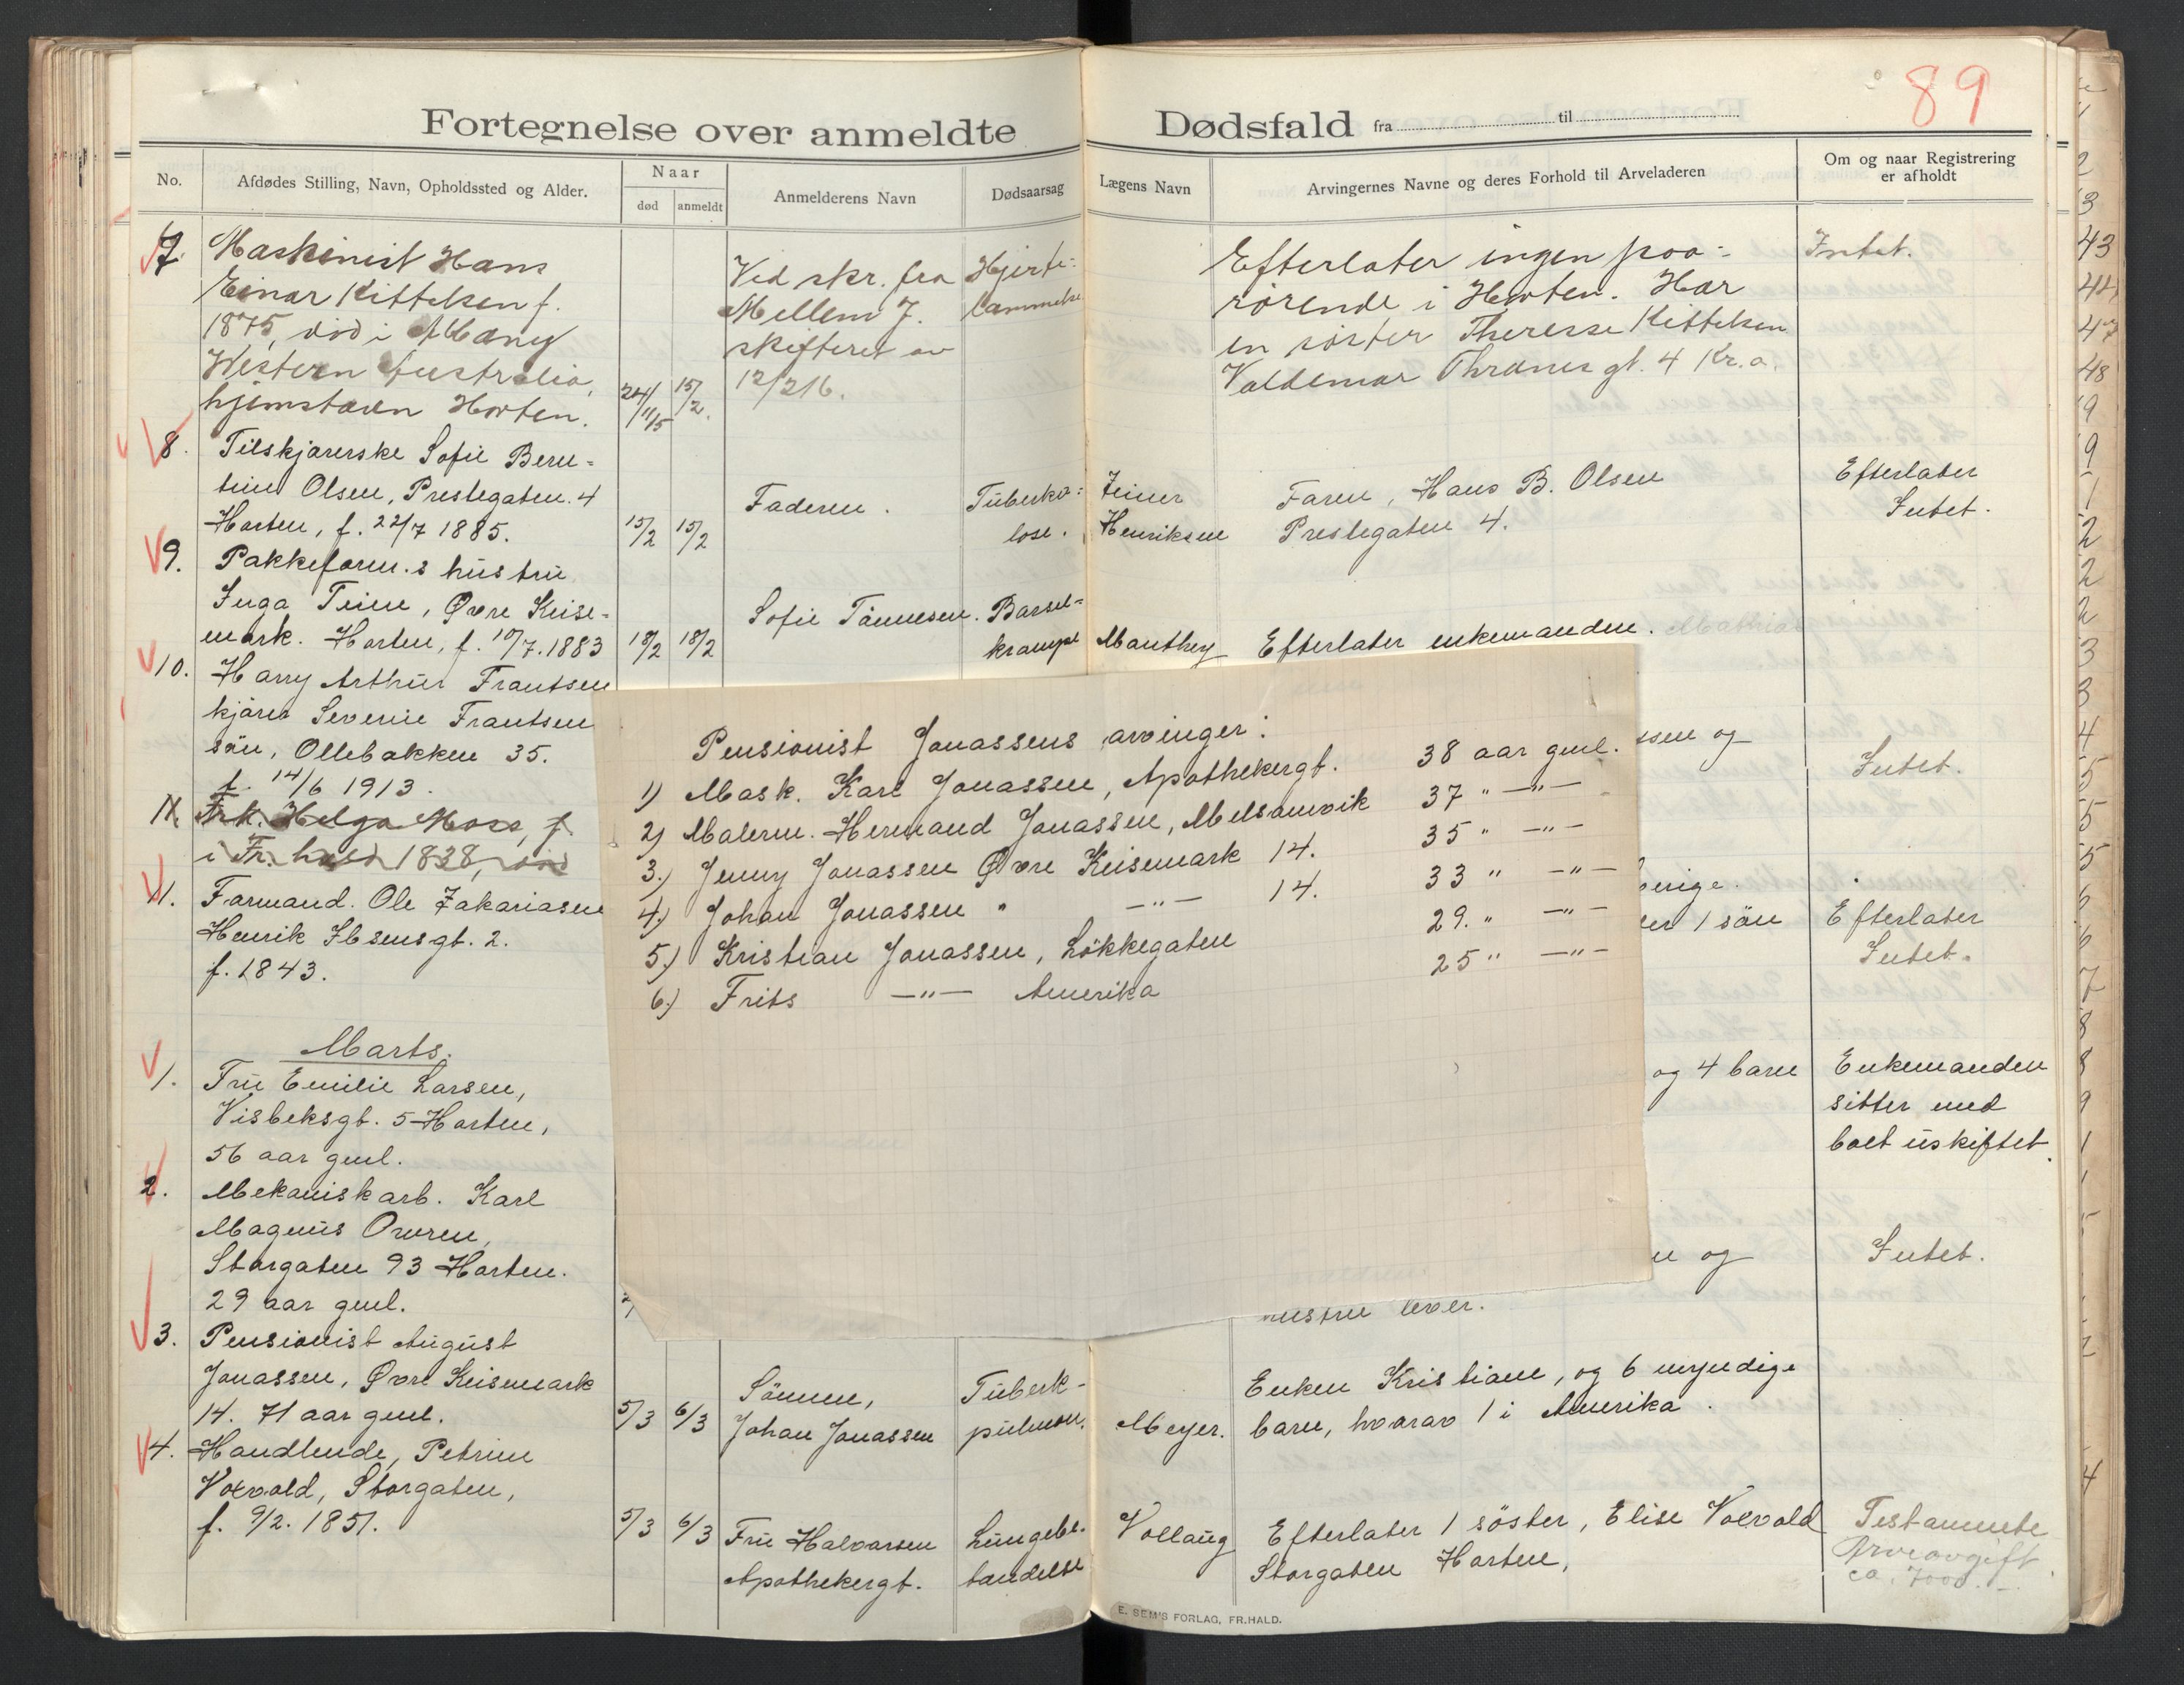 89
Fortegnelse over anmeldte Dødsfald fra til
No.
Afdødes Stilling, Navn, Opholdssted og Alder.
Naar
død
anmeldt
Anmelderens Navn
Dødsaarsag
Lægens Navn
Arvingernes Navne og deres Forhold til Arveladeren
Om og naar Registrering
er afholdt
7. Maskinist Hans
Einar Kittelsen f.
1875, död i Albany
Western Australia,
hjemstavn Horten.
24/11/15
15/2.
Ved skr. fra
Mellem J.
skifteret av
12/2 16.
Hjerte-
lammelse
Efterlater ingen paa-
rörende i Horten. Har
en söster Theresse Kittelsen
Valdemar Thranes gt. 4 Kr.a.
Intet.
8. Tilskjærerske Sofie Bern-
tine Olsen, Prestegaten 4
Horten, f. 22/7 1885.
15/2
15/2
Faderen.
Tuberku-
lose.
Zeiner
Henriksen
Faren, Hans B. Olsen
Prestegaten 4.
Efterlater
Intet.
9. Pakkeform.s hustru
Inga Teien, Øvre Keise-
mark. Horten, f. 10/7. 1883
18/2
18/2
Sofie Tönnesen.
Barsel-
krampe
Manthey
Efterlater enkemanden.
10. Harry Arthur Frantsen
kjörer Severin Frantsen
sön, Ollebakken 35.
f. 14/6 1913.
ssen og
Intet.
11. Frk. Helga Moss, f.
i Fr.hald 1838, död
11. Formand. Ole Zakariasen
Henrik Ibsensgt. 2.
f. 1843.
verige.
er 1 sön
Efterlater
Intet.
Marts.
1. Fru Emilie Larsen,
Visbeksgt. 5 Horten,
56 aar gml.
og 4 barn
Enkemanden
sitter med
boet uskiftet.
2. Mekaniskarb. Karl
Magnus Owren,
Storgaten 93 Horten.
29 aar gml.
en og
hustru lever.
Intet.
3. Pensionist August
Jonassen, Øvre Keisemark
14. 71 aar gml.
5/3
6/3
Sönnen,
Johan Jonassen
Tuberk-
pulmon.
Meyer.
Enken Kristiane, og 6 myndige
barn, hvorav 1 i Amerika.
4. Handlende, Petrine
Voxvold, Storgaten,
f. 9/2. 1851.
5/3
6/3
Fru Halvorsen
Apothekergt.
Lungebe-
tændelse
Vollaug
Efterlater 1 söster, Elise Voxvold
Storgaten Horten,
Testamente
Arveavgift
ca. 7000.-
Pensionist Jonassens arvinger:
1) Mask. Karl Jonassen, Apothekergt. 38 aar gml.
2) Malerm. Hermand Jonassen, Melsomvik 37 " —"—
3.) Jenny Jonassen Øvre Keisemark 14. 35 " —"—
4.) Johan Jonassen " —"— 14. 33 " —"—
5.) Kristian Jonassen, Lökkegaten 29. " —"—
6.) Frits —"— Amerika 25 " —"—
E. SEM'S FORLAG, FR.HALD.